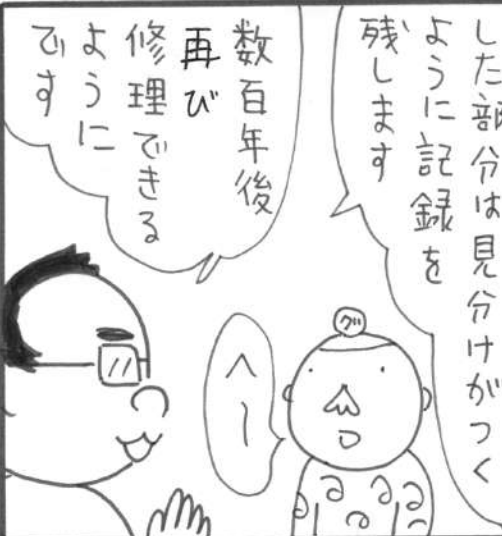 した部分は見分けがつく
ように記録を
残します
数百年後
再び
修理できる
ように
です
グ
へ〜